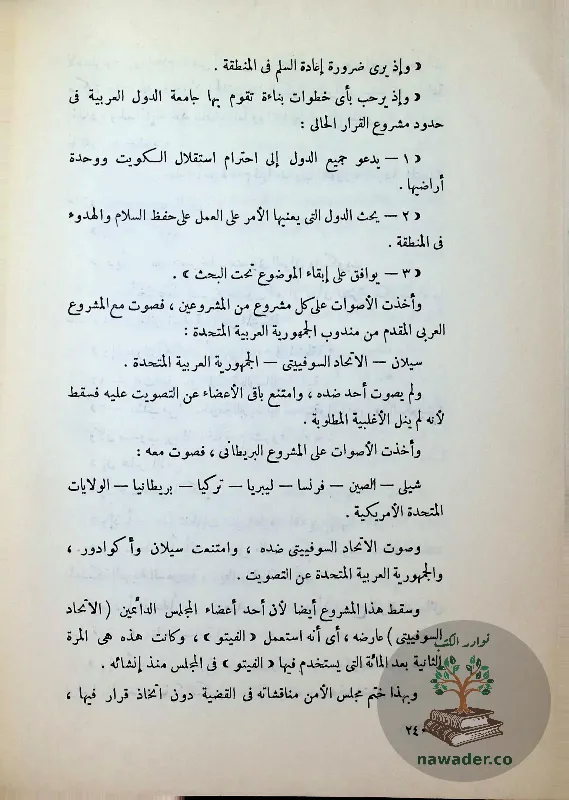 « وإذ يرى ضرورة إعادة السلم فى المنطقة .
« وإذ يرحب بأى خطوات بناءة تقوم بها جامعة الدول العربية فى
حدود مشروع القرار الحالى :
« ١ — يدعو جميع الدول إلى احترام استقلال الكويت ووحدة
أراضيها .
« ٢ — يحث الدول التى يعنيها الأمر على العمل على حفظ السلام والهدوء
فى المنطقة .
« ٣ — يوافق على إبقاء الموضوع تحت البحث » .
وأخذت الأصوات على كل مشروع من المشروعين ، فصوت مع المشروع
العربى المقدم من مندوب الجمهورية العربية المتحدة :
سيلان — الاتحاد السوفييتى — الجمهورية العربية المتحدة .
ولم يصوت أحد ضده ، وامتنع باقى الأعضاء عن التصويت عليه فسقط
لأنه لم ينل الأغلبية المطلوبة .
وأخذت الأصوات على المشروع البريطانى ، فصوت معه :
شيلى — الصين — فرنسا — ليبريا — تركيا — بريطانيا — الولايات
المتحدة الأمريكية .
وصوت الاتحاد السوفييتى ضده ، وامتنعت سيلان وأكوادور ،
والجمهورية العربية المتحدة عن التصويت .
وسقط هذا المشروع أيضا لأن أحد أعضاء المجلس الدائمين ( الاتحاد
السوفييتى ) عارضه ، أى أنه استعمل « الفيتو » ، وكانت هذه هى المرة
الثانية بعد المائة التى يستخدم فيها « الفيتو » فى المجلس منذ إنشائه .
وبهذا ختم مجلس الأمن مناقشاته فى القضية دون اتخاذ قرار فيها ،
٢٤٠
نوادر الكتب
nawader.co